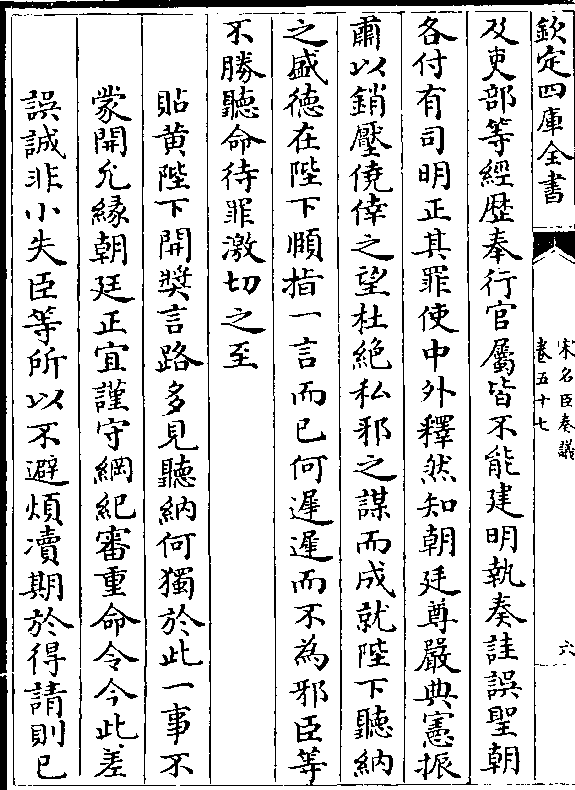 欽定四庫全書
宋名臣奏議
卷五十七
六
及吏部等經歴奉行官屬皆不能建明執奏詿誤聖朝
各付有司明正其罪使中外釋然知朝廷尊嚴典憲振
肅以銷壓僥倖之望杜絶私邪之謀而成就陛下聽納
之盛徳在陛下頋指一言而已何遲遲而不為邪臣等
不勝聽命待罪激切之至
貼黄陛下開奬言路多見聽納何獨於此一事不
蒙開允縁朝廷正宜謹守綱紀審重命令今此差
誤誠非小失臣等所以不避煩凟期於得請則已